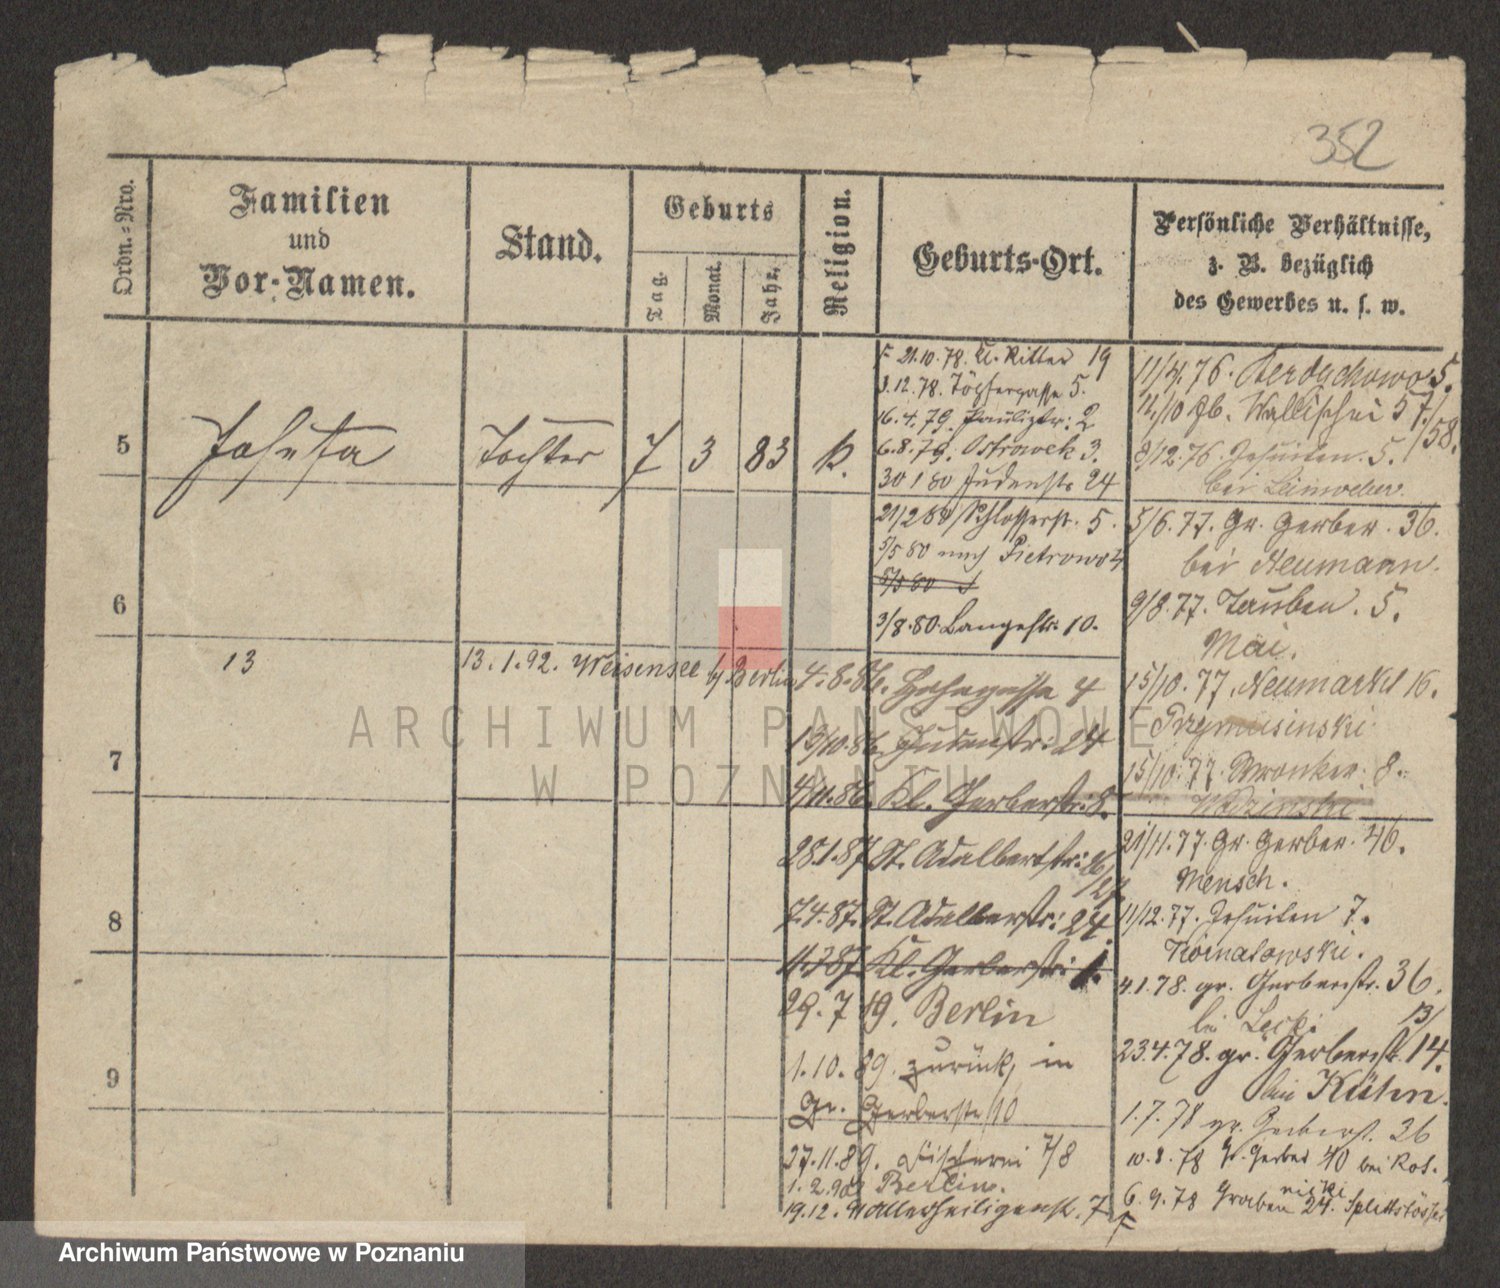 352
Ordn.-Nro.
Familien
und
Vor-Namen.
Stand.
Geburts
Tag.
Monat.
Jahr.
Religion.
Geburts-Ort.
Persönliche Verhältnisse,
z. B. bezüglich
des Gewerbes u. s. w.
5
Josefa
Tochter
7
3
83
k.
F 21.10.78. Kl. Ritter 19
3.12.78. Töpfergasse 5.
16.4.79. Paulistr. 2
6.8.79. Ostrowek 3.
30 1 80 Judenstr 24
21/2 80 Schlosserstr. 5.
5/5 80 nach Pietrowo 4
5/5 80
3/8.80. Langestr. 10.
6
13
13.1.92. Weisensee b/ Berlin
4.8.86. 4
13/10.86. Judenstr. 24
7
4/11.86. Kl. Gerberstr. 8.
28.1.87 St. Adalbertstr: 26/27.
8
7.4.87. St. Adalbertstr: 24.
Kl. Gerberstr: 1.
29.7 89. Berlin
9
1.10.89. zurück, in
Gr. Gerberstr 10
27.11.89. Fischerei 7/8
1.2.90 Berlin.
19.12.91 Allerheiligenst. 7
F
11/4.76. Berdychowo 5.
11/10 76. Wallischei 57/58.
8/12.76. Jesuiten. 5.
bei Leinweber.
5/6.77. Gr. Gerber. 36.
bei Neumann.
9/8.77. Tauben. 5.
Mai.
15/10.77. Neumarkt 16.
Przymusinski
15/10.77. Wronker. 8.
21/11.77. Gr. Gerber. 40.
Mensch.
11/12.77. Jesuiten 7.
4.1.78. gr. Gerberstr. 36.
bei
13/
23.4.78. gr. Gerberstr. 14.
bei Kühn.
1.7.78 gr. Gerberst. 36
10.8.78 Gr. Gerber 40 bei Ros.
niski
6.9.78 Graben 24. Splettstösser
ARCHIWUM PAŃSTWOWE
W POZNANIU
Archiwum Państwowe w Poznaniu